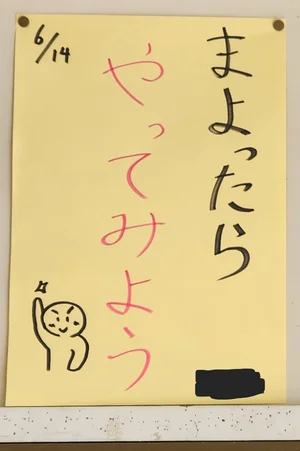 まよったら
やってみよう
6/14